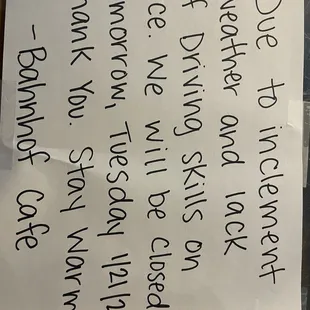 Due to inclement
weather and lack
f Driving skills on
ce. We will be closed
omorrow, Tuesday 1/21/2
hank You. Stay Warm
- Bahnhof Cafe